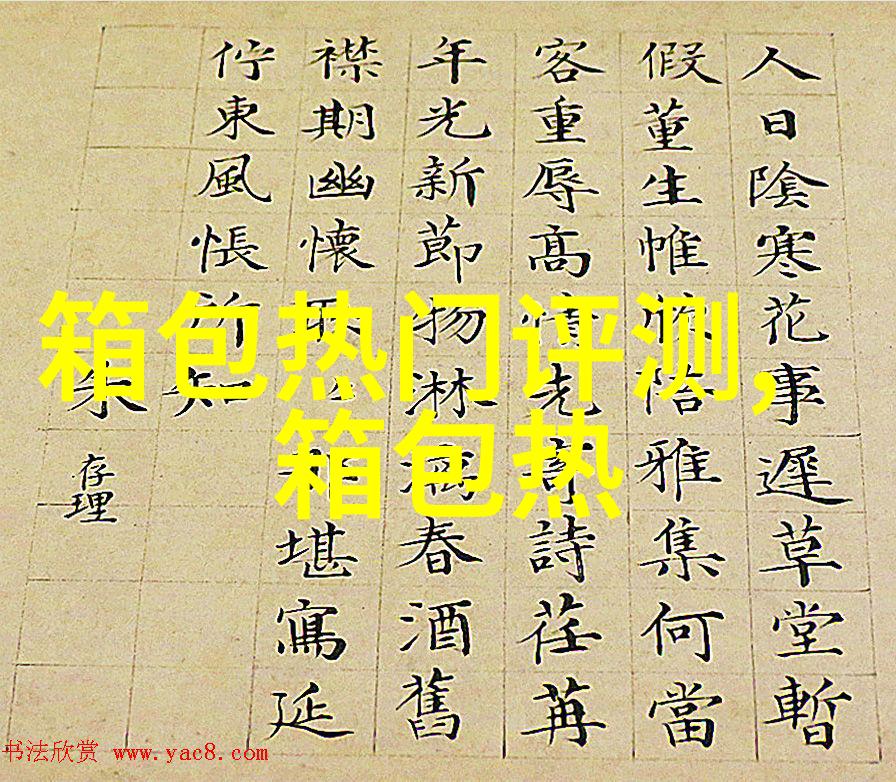 人日陰寒花事遲草堂暫
假董生帷陪雅集何當
客重辱高情先寄詩荏苒
年光新節物淋漓春酒舊
襟期幽懷堪寫延
佇東風悵所知
朱
存理
箱包热门评测,
箱包热
书法欣赏 www.yac8.com